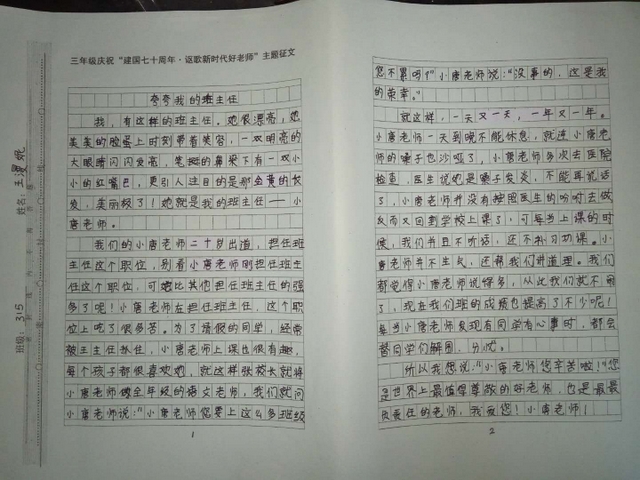 三年级庆祝“建国七十周年·讴歌新时代好老师”主题征文
夸夸我的班主任
我，有这样的班主任。她很漂亮，她
美美的脸蛋上时刻带着笑容，一双明亮的
大眼睛闪闪发亮，笔挺的鼻梁下有一双小
小的红嘴巴，更引人注目的是那金黄的长
发，美丽极了！她就是我的班主任——小
唐老师。
我们的小唐老师二十岁出道，担任班
主任这个职位，别看小唐老师刚担任班主
任这个职位，可她比其他担任班主任的强
多了呢！小唐老师在担任班主任，这个职
位上吃了很多苦。为了请假的同学，经常
被王主任扒住，小唐老师上课也很有趣，
每个孩子都很喜欢她，就这样张校长就将
小唐老师做全年级的语文老师，我们就问
小唐老师说：“小唐老师您要上这么多班级
1
您不累吗？”小唐老师说：“没事的，这是我
的荣幸。”
就这样，一天又一天，一年又一年。
小唐老师一天到晚不能休息，就连小唐老
师的嗓子也沙哑了，小唐老师多次去医院
检查，医生说她是嗓子发炎，不能再说话
了，小唐老师并没有按照医生的吩咐去做
反而又回到学校上课了，可每当上课的时
候，我们并且不听话，还不补习功课。小
唐老师并不生气，还帮我们讲道理。我们
都觉得小唐老师说得多，从此我们就不闹
了，现在我们班的成绩也提高了不少呢！
每当小唐老师发现有同学有心事时，都会
替同学们解围，分忧。
所以我想说：“小唐老师您辛苦啦！”您
是世界上最值得尊敬的好老师，也是最最
负责任的老师，我爱您！小唐老师！
2
班级：315
姓名：王